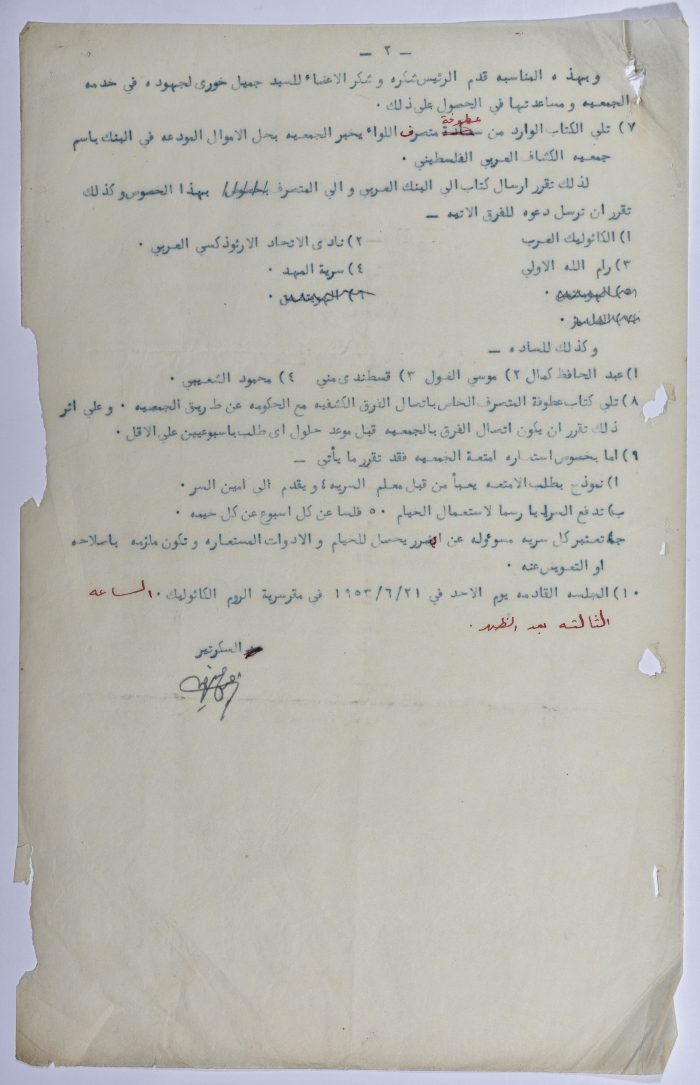 — ٢ —
وبهذه المناسبه قدم الرئيس شكره وشكر الاعضاء للسيد جميل خورى لجهوده في خدمه
الجمعيه ومساعدتها في الحصول علي ذلك ٠
٧) تلي الكتاب الوارد من عطوفة متصرف اللواء يخبر الجمعيه بحل الاموال المودعه في البنك باسم
جمعيه الكشاف العربي الفلسطيني ٠
لذلك تقرر ارسال كتاب الي البنك العربي و الي المتصرف بهذا الخصوص وكذلك
تقرر ان ترسل دعوه للفرق الاتيه —
١) الكاثوليك العرب
٢) نادى الاتحاد الارثوذكسي العربي ٠
٣) رام الله الاولي
٤) سرية المهد ٠
وكذلك للساده —
١) عبد الحافظ كمال ٢) موسي الغول ٣) قسطندى مني ٤) محمود الشعيبي ٠
٨) تلي كتاب عطوفة المتصرف الخاص باتصال الفرق الكشفيه مع الحكومه عن طريق الجمعيه ٠ وعلي اثر
ذلك تقرر ان يكون اتصال الفرق بالجمعيه قبل موعد حلول اى طلب باسبوعيين علي الاقل ٠
٩) اما بخصوص استعاره امتعة الجمعيه فقد تقرر ما يأتي —
١) نموذج بطلب الامتعه يعبأ من قبل معلم السريه ويقدم الي امين السر ٠
ب) تدفع السرايا رسما لاستعمال الخيام ٥٠ فلسا عن كل اسبوع عن كل خيمه ٠
ج) تعتبر كل سريه مسوءوله عن اى ضرر يحصل للخيام و الادوات المستعاره و تكون ملزمه باصلاحه
او التعويض عنه ٠
١٠) الجلسه القادمه يوم الاحد في ١٩٥٣/٦/٢١ في مقر سرية الروم الكاثوليك ٠ الساعه
الثالثه بعد الظهر ٠
السكرتير